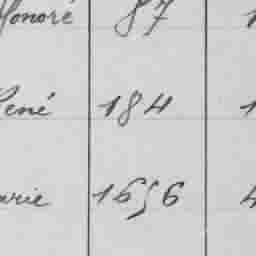 Honoré 87 1
René 184 1
arie 1656 4